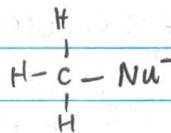 H
H - C - Nu⁻
H